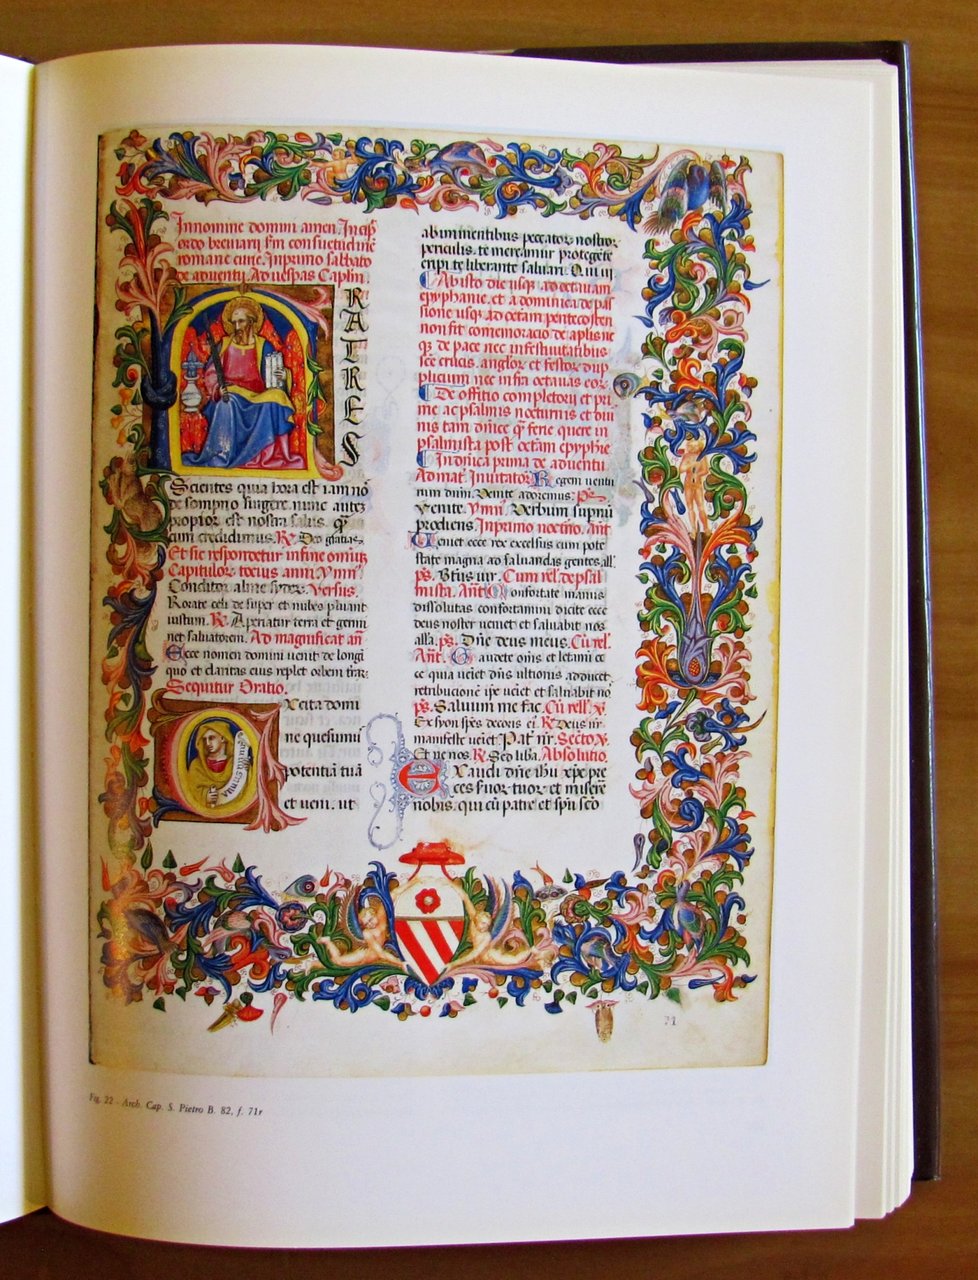 In nomine domini amen. Incip̄
ordo breviarii s̄m consuetudinē
romane curie. In primo sabbato
de adventu. Ad vesp̄as Capl̄m
RATRES
Scientes quia hora est iam nō
de sompno surgere. nunc autez
propior est nostra salus. q̄
cum credidimus. R̷. Deo gratias.
Et sic respondetur in fine omniū
Capitulor totius anni. Ymn̄
Conditor alme syder. Versus.
Rorate celi desuper et nubes pluant
iustum. R̷. Aperiatur terra et germi
net salvatorem. Ad magnificat an̄
Ecce nomen domini venit de longi
quo et claritas eius replet orbem trār
Sequitur Oratio.
Excita domi
ne quesumus
potentiā tuā
et veni. ut
ab imminentibus peccator nostror
periculis. te mereamur protegēte
eripi te liberante salvari. Qui
Ab isto die usq ad octavam
epyphanie. et a dominica de pas
sione usq ad octām pentecosten
non fit comemoracio de aplis ne
q de pace nec in festivitatibus
scē crucis. anglor et festor dup
plicium nec infra octavas eor
De offitio completorii et pri
me ac psalmis nocturnis et diur
nis tam dn̄ice q ferie quere in
psalmista post octām epyphie
In dn̄ica prima de adventu
Ad mat̄. Invitator. Regem ventu
rum dn̄m. Venite adoremus. p̄s.
Venite. Ymn̄. Verbum supnū
prodiens. In primo nocturno. Ant̄
Veniet ecce rex excelsus cum pote
state magna ad salvandas gentes all̄
p̄s. Bt̄us vir. Cum rel̄. de psal
mista. Ant̄. Confortate manus
dissolutas confortamini dicite ecce
deus noster veniet et salvabit nos
alla. p̄s. Dn̄e deus meus. Cū rel̄.
Ant̄. Gaudete om̄s et letami ec
ce quia veniet dn̄s ultionis adducet
retributionē ipe veniet et salvabit nō
p̄s. Salvum me fac. Cū rel̄. V̷
Ex syon sp̄es decoris ei R̷ Deus nr̄
manifeste veniet Pat̄ nr̄. Secto V̷.
Et ne nos R̷. Sed liba. Absolutio.
Exaudi dn̄e ihū xpe pre
ces suor tuor et misere
nobis. qui cū patre et spū sco
71
Fig. 22 - Arch. Cap. S. Pietro B. 82, f. 71r